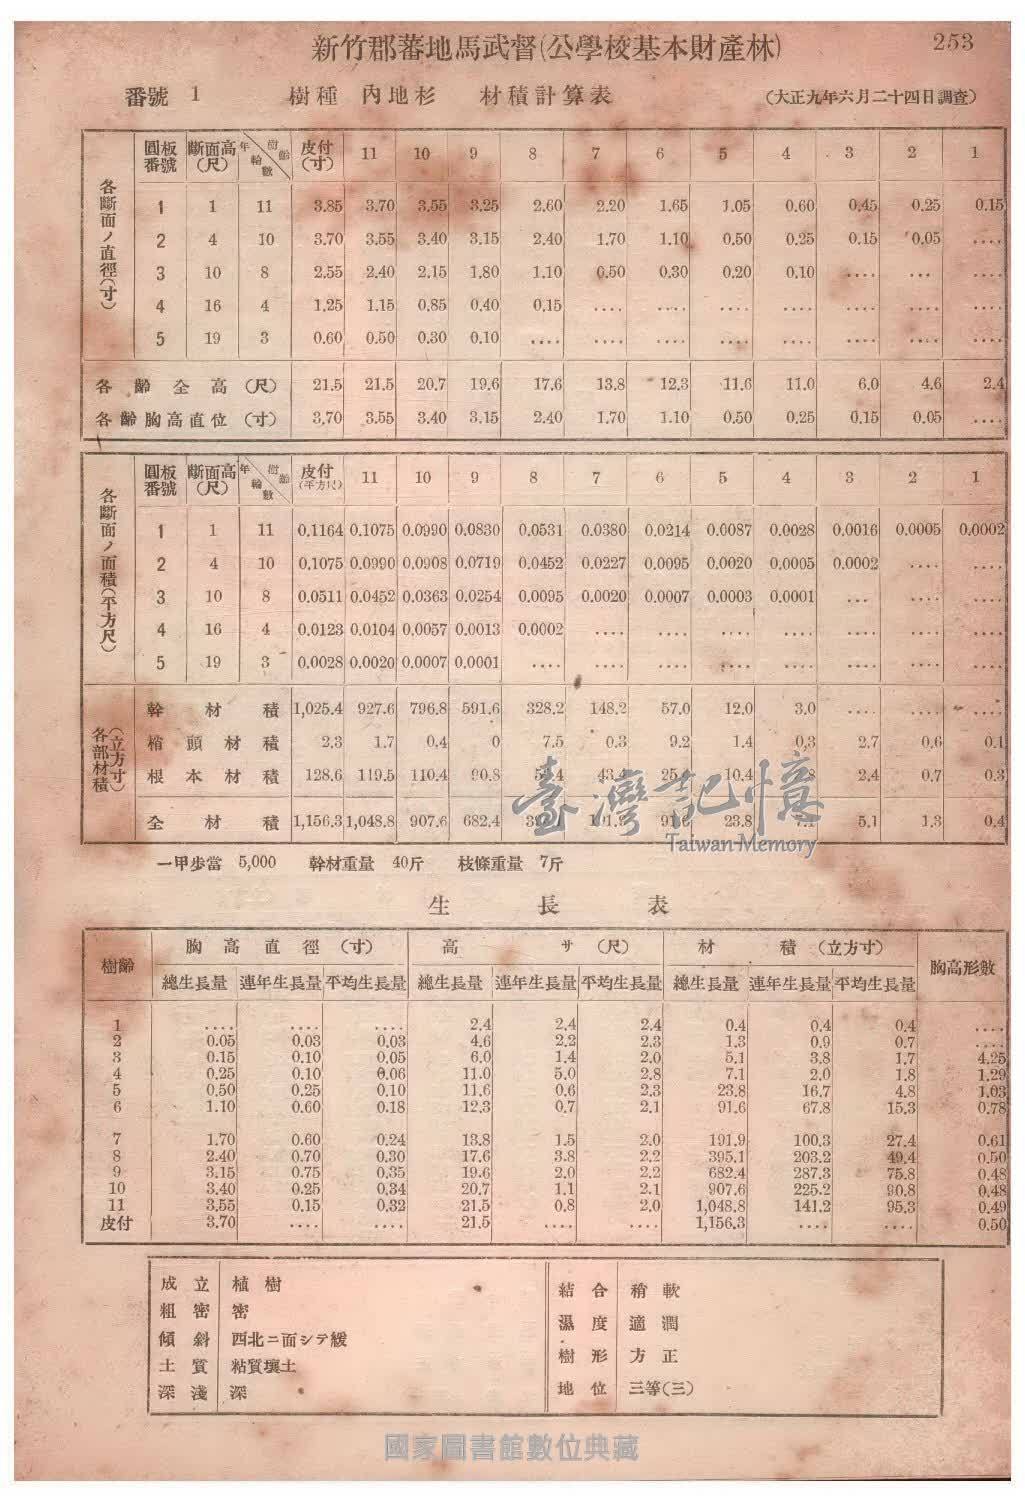 新竹郡蕃地馬武督(公學校基本財產林) 253
番號 1 樹種 內地杉 材積計算表 (大正九年六月二十四日調查)
各斷面ノ直徑(寸)
圓板番號 斷面高(尺) 年輪數 樹齡 皮付(寸) 11 10 9 8 7 6 5 4 3 2 1
1 1 11 3.85 3.70 3.55 3.25 2.60 2.20 1.65 1.05 0.60 0.45 0.25 0.15
2 4 10 3.70 3.55 3.40 3.15 2.40 1.70 1.10 0.50 0.25 0.15 0.05 ....
3 10 8 2.55 2.40 2.15 1.80 1.10 0.50 0.30 0.20 0.10 .... ... ....
4 16 4 1.25 1.15 0.85 0.40 0.15 .... .... .... .... .... .... ....
5 19 3 0.60 0.50 0.30 0.10 .... .... .... .... .... .... .... ....
各齡全高(尺) 21.5 21.5 20.7 19.6 17.6 13.8 12.3 11.6 11.0 6.0 4.6 2.4
各齡胸高直位(寸) 3.70 3.55 3.40 3.15 2.40 1.70 1.10 0.50 0.25 0.15 0.05 ....
各斷面ノ面積(平方尺)
圓板番號 斷面高(尺) 年輪數 樹齡 皮付(平方尺) 11 10 9 8 7 6 5 4 3 2 1
1 1 11 0.1164 0.1075 0.0990 0.0830 0.0531 0.0380 0.0214 0.0087 0.0028 0.0016 0.0005 0.0002
2 4 10 0.1075 0.0990 0.0908 0.0719 0.0452 0.0227 0.0095 0.0020 0.0005 0.0002 .... ....
3 10 8 0.0511 0.0452 0.0363 0.0254 0.0095 0.0020 0.0007 0.0003 0.0001 ... .... ....
4 16 4 0.0123 0.0104 0.0057 0.0013 0.0002 .... .... .... .... .... .... ....
5 19 3 0.0028 0.0020 0.0007 0.0001 .... .... .... .... .... .... .... ....
各部材積(立方寸)
幹材積 1,025.4 927.6 796.8 591.6 328.2 148.2 57.0 12.0 3.0 .... .... ....
梢頭材積 2.3 1.7 0.4 0 7.5 0.3 9.2 1.4 0.3 2.7 0.6 0.1
根本材積 128.6 119.5 110.4 90.8 10.4 2.4 0.7 0.3
全材積 1,156.3 1,048.8 907.6 682.4 23.8 5.1 1.3 0.4
臺灣記憶
Taiwan Memory
一甲步當 5,000 幹材重量 40斤 枝條重量 7斤
生長表
樹齡 胸高直徑(寸) 高サ(尺) 材積(立方寸) 胸高形數
總生長量 連年生長量 平均生長量 總生長量 連年生長量 平均生長量 總生長量 連年生長量 平均生長量
1 .... .... .... 2.4 2.4 2.4 0.4 0.4 0.4 ....
2 0.05 0.03 0.03 4.6 2.2 2.3 1.3 0.9 0.7 ....
3 0.15 0.10 0.05 6.0 1.4 2.0 5.1 3.8 1.7 4.25
4 0.25 0.10 0.06 11.0 5.0 2.8 7.1 2.0 1.8 1.29
5 0.50 0.25 0.10 11.6 0.6 2.3 23.8 16.7 4.8 1.03
6 1.10 0.60 0.18 12.3 0.7 2.1 91.6 67.8 15.3 0.78
7 1.70 0.60 0.24 13.8 1.5 2.0 191.9 100.3 27.4 0.61
8 2.40 0.70 0.30 17.6 3.8 2.2 395.1 203.2 49.4 0.50
9 3.15 0.75 0.35 19.6 2.0 2.2 682.4 287.3 75.8 0.48
10 3.40 0.25 0.34 20.7 1.1 2.1 907.6 225.2 90.8 0.48
11 3.55 0.15 0.32 21.5 0.8 2.0 1,048.8 141.2 95.3 0.49
皮付 3.70 .... .... 21.5 .... .... 1,156.3 .... .... 0.50
成立 植樹
粗密 密
傾斜 西北ニ面シテ緩
土質 粘質壤土
深淺 深
結合 稍軟
濕度 適潤
樹形 方正
地位 三等(三)
國家圖書館數位典藏